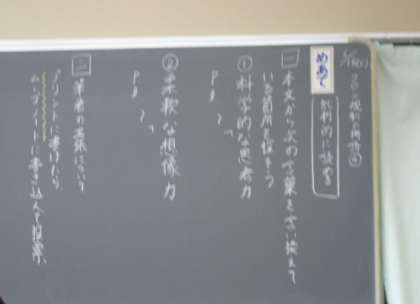 めあて 批判的に読む
一 本文から次の言葉を言い換えて
いる箇所を探そう
① 科学的な思考力
P 8
② 柔軟な想像力
P 8
二 筆者の主張について
プリントに書けたら
ムーブノートに書き込んで投票